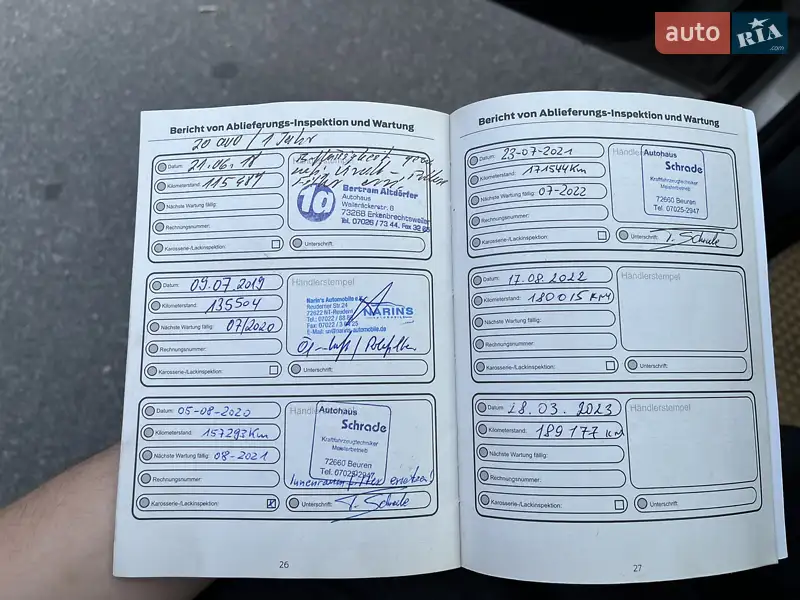 auto RIA .com
Bericht von Ablieferungs-Inspektion und Wartung
20 000 / 1 Jahr
Datum: 21.06.18
Kilometerstand: 115 489
Nächste Wartung fällig:
Rechnungsnummer:
Karosserie-/Lackinspektion:
Bertram Altdörfer
Autohaus
73268 Erkenbrechtsweiler
Tel. 07026 / 73 44, Fax 32 65
Unterschrift:
Datum: 09.07.2019
Kilometerstand: 135504
Nächste Wartung fällig: 07/2020
Rechnungsnummer:
Karosserie-/Lackinspektion:
Händlerstempel
Narin's Automobile e.K.
Reuderner Str.24
72622 NT-Reudern
NARINS
AUTOMOBILE
Unterschrift:
Datum: 05-08-2020
Kilometerstand: 157293 Km
Nächste Wartung fällig: 08-2021
Rechnungsnummer:
Karosserie-/Lackinspektion: X
Autohaus
Schrade
Kraftfahrzeugtechniker
Meisterbetrieb
72660 Beuren
Tel. 07025-2947
Unterschrift: T. Schrade
26
Bericht von Ablieferungs-Inspektion und Wartung
Datum: 23-07-2021
Kilometerstand: 171544 Km
Nächste Wartung fällig: 07-2022
Rechnungsnummer:
Karosserie-/Lackinspektion:
Autohaus
Schrade
Kraftfahrzeugtechniker
Meisterbetrieb
72660 Beuren
Tel. 07025-2947
Unterschrift: T. Schrade
Datum: 17.08.2022
Kilometerstand: 180 015 KM
Nächste Wartung fällig:
Rechnungsnummer:
Karosserie-/Lackinspektion:
Händlerstempel
Unterschrift:
Datum: 28.03.2023
Kilometerstand: 189 177 KM
Nächste Wartung fällig:
Rechnungsnummer:
Karosserie-/Lackinspektion:
Händlerstempel
Unterschrift:
27